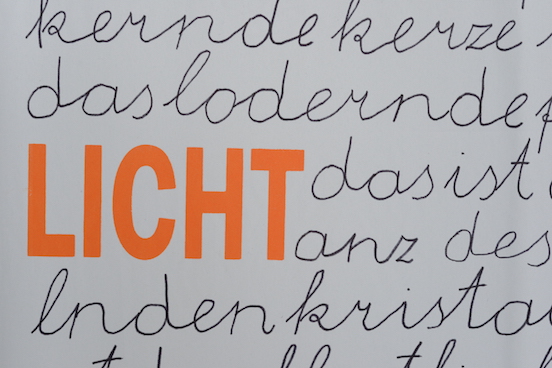 kernde kerze
das lodernde
LICHT das ist
anz des
lnden krista